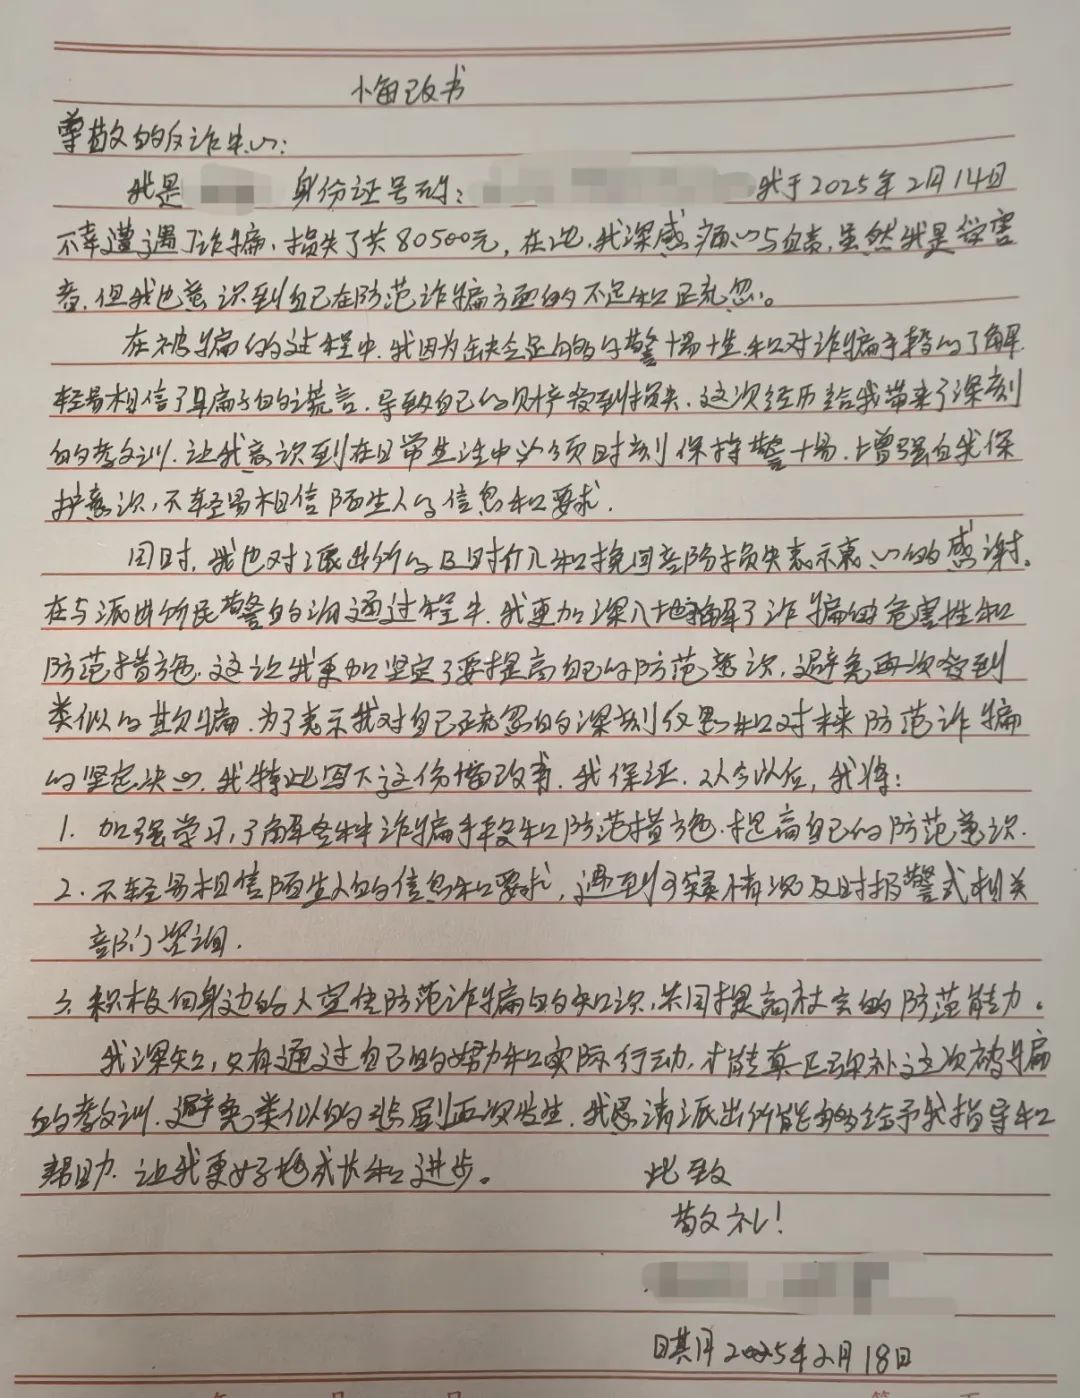 悔改书
尊敬的反诈中心:
我是 身份证号码: 我于2025年2月14日
不幸遭遇了诈骗,损失了共80500元,在此,我深感痛心与自责,虽然我是受害
者,但我也意识到自己在防范诈骗方面的不足和疏忽。
在被骗的过程中,我因为缺乏足够的警惕性和对诈骗手段的了解
轻易相信了骗子的谎言,导致自己的财产受到损失,这次经历给我带来了深刻
的教训,让我意识到在日常生活中必须时刻保持警惕,增强自我保
护意识,不轻易相信陌生人的信息和要求.
同时,我也对派出所的及时介入和挽回部分损失表示衷心的感谢。
在与派出所民警的沟通过程中,我更加深入地了解了诈骗的危害性和
防范措施,这让我更加坚定了要提高自己的防范意识,避免再次受到
类似的欺骗,为了表示我对自己疏忽的深刻反思和对未来防范诈骗
的坚定决心,我特此写下这份悔改书,我保证,从今以后,我将:
1. 加强学习,了解各种诈骗手段和防范措施,提高自己的防范意识.
2. 不轻易相信陌生人的信息和要求,遇到可疑情况及时报警或相关
部门咨询.
3. 积极向身边的人宣传防范诈骗的知识,共同提高社会的防范能力。
我深知,只有通过自己的努力和实际行动,才能真正弥补这次被骗
的教训,避免类似的悲剧再次发生,我恳请派出所能够给予我指导和
帮助,让我更好地成长和进步。 此致
敬礼!
日期2025年2月18日